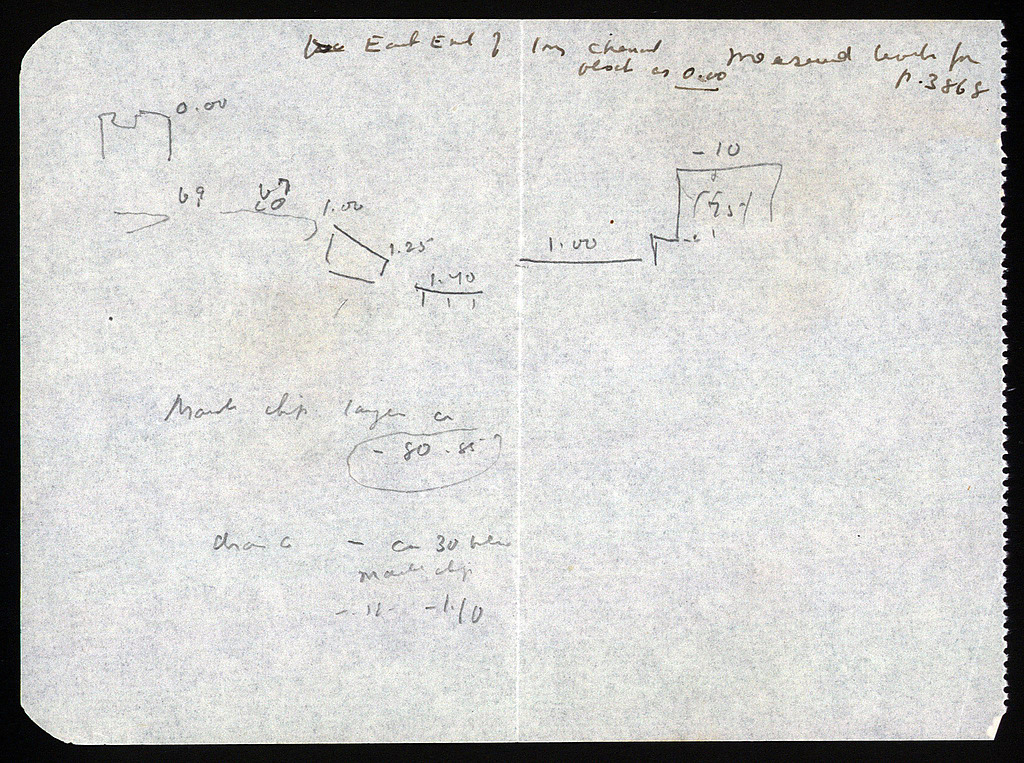 East End of long channel measured levels for
block as 0.00 P. 3868
0.00
- 10
69
1.00
1.25
1.00
1.40
Marble chip layer ca
- 80 - 85
drain - ca 30 below
marble chip
- 1.10